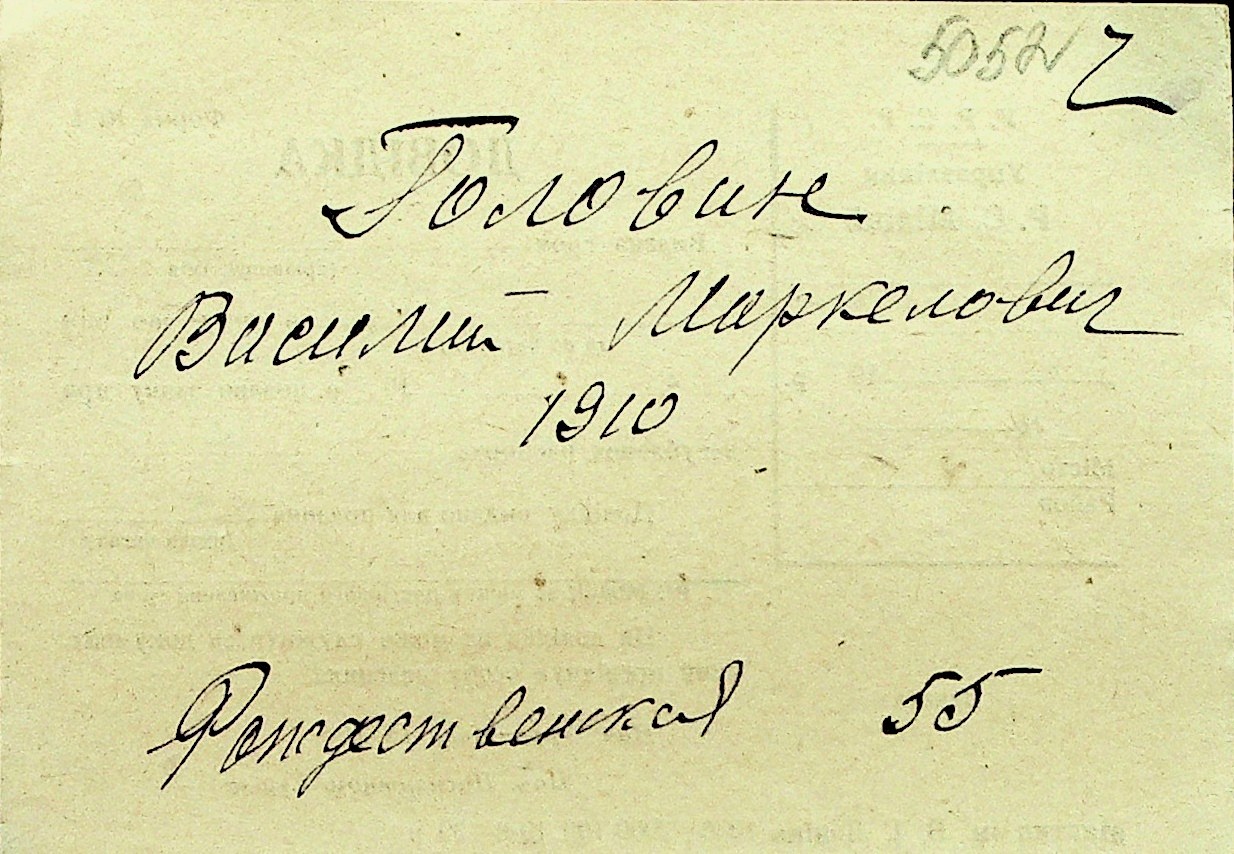 5052
Головин
Василий Маркелович
1910
Рождественская 55